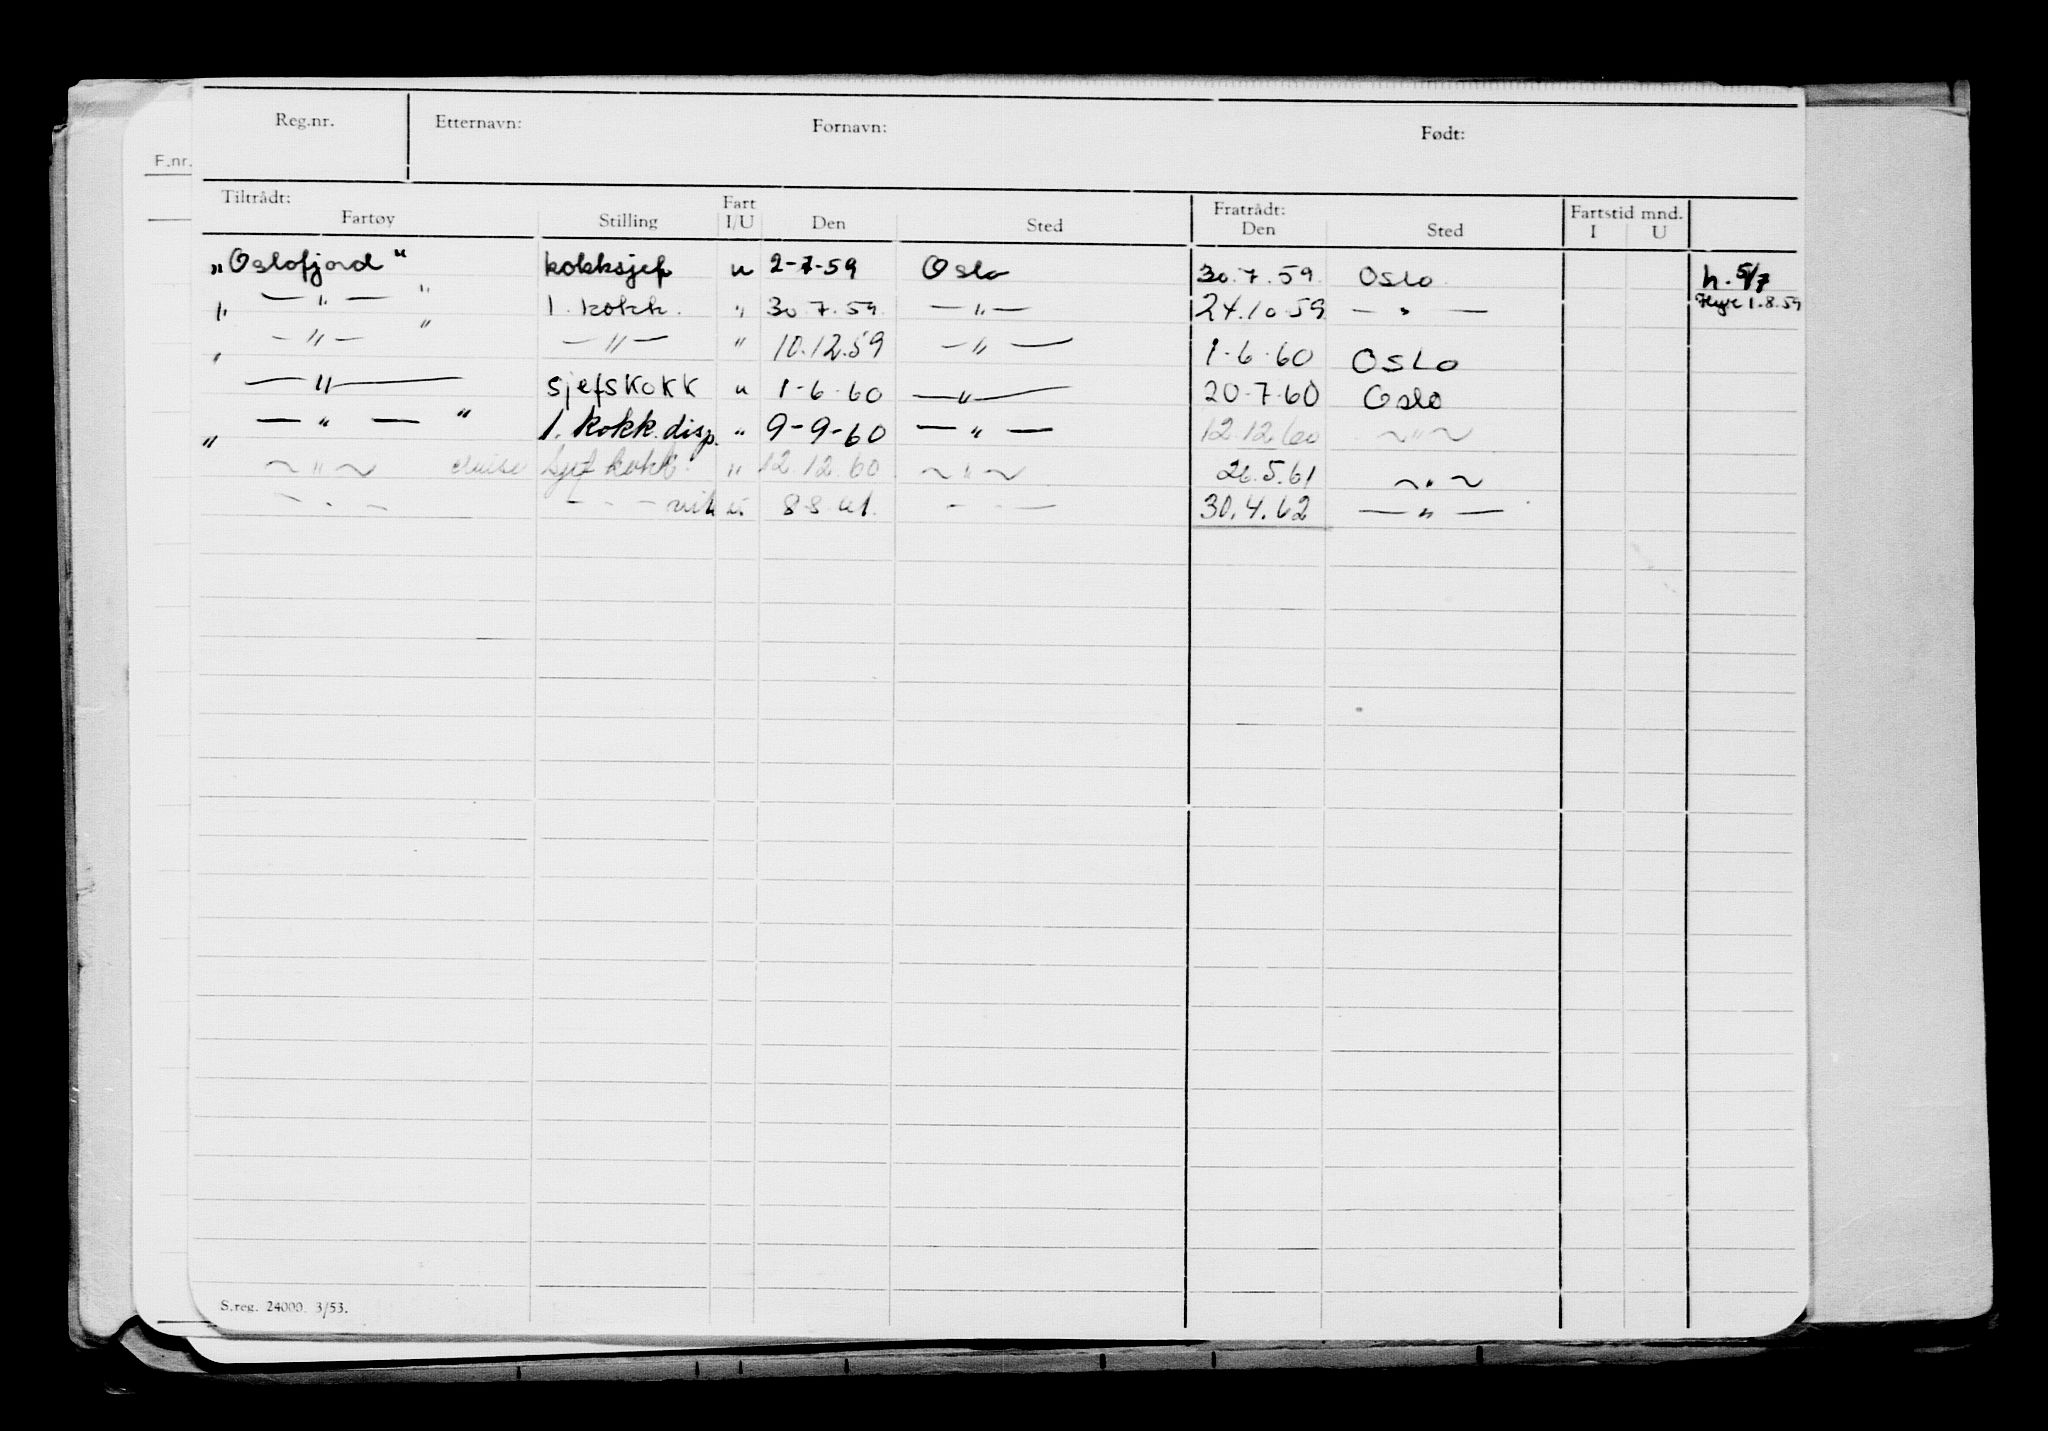 Reg.nr. Etternavn: Fornavn: Født:
F.nr.
Tiltrådt: Fart Fratrådt: Fartstid mnd.
Fartøy Stilling I/U Den Sted Den Sted I U
„Oslofjord" kokksjef u 2-7-59 Oslo 30.7.59. Oslo h. 5/7
„ — " — " 1. kokk. " 30.7.59. — " — 24.10.59 — " — Hyre 1.8.59
„ — " — " — " — " 10.12.59 — " — 1-6-60 OSLO
— " — sjefskokk u 1-6-60 — " — 20-7-60 Oslo
„ — " — " 1. kokk.disp. " 9-9-60 — " — 12.12.60 ~ " ~
~ " ~ cruise sjef kokk. " 12.12.60 ~ " ~ 26.5.61 ~ " ~
- - - - - - u. 8.8.61. - - - 30.4.62 — " —
S.reg. 24000. 3/53.